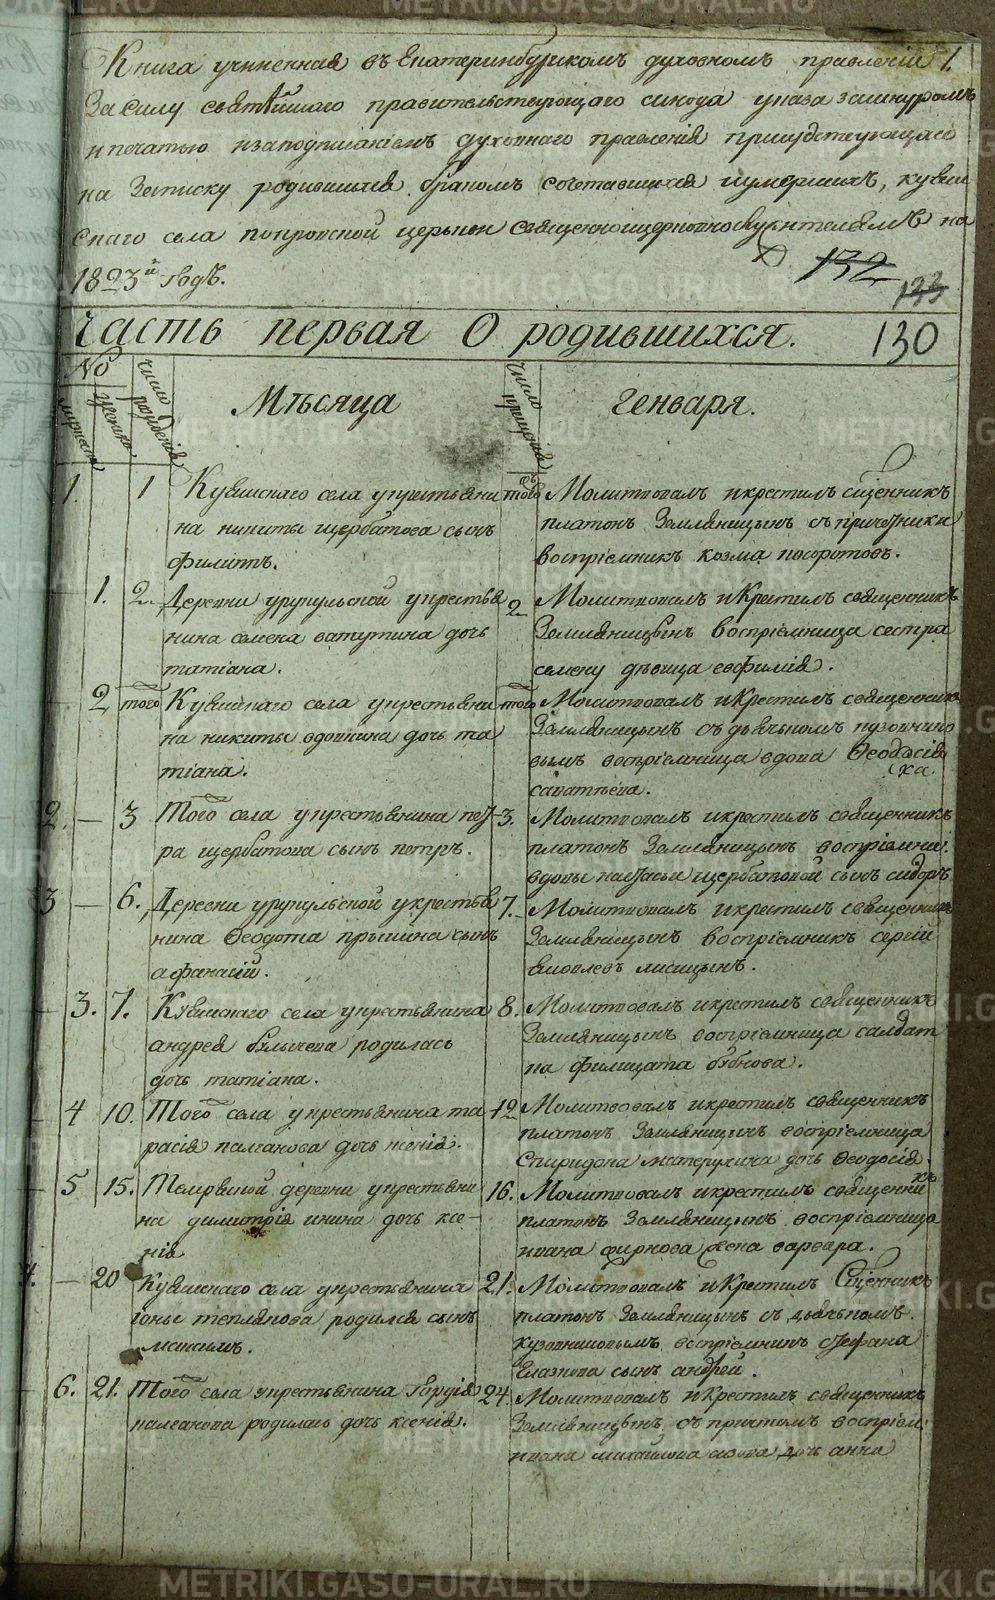 METRIKI.GASO-URAL.RU
Книга учиненная въ Екатеринбурскомъ духовномъ правленіи 1.
За силу святѣйшаго правительствующаго синода указа зашнуромъ
и печатью изаподписаніемъ духовнаго правленія присудствующаго
на Записку родившихся бракомъ сочетавшихся иумершихъ, кувин
скаго села покровской церькви священноицерковнослужителямъ на
1823й годъ.
132
133
Часть первая О родившихся. 130
№
Число рожденія
Мѣсяца
Число крещенія
Генваря.
мужеска
женска
1. 1 Кувинскаго села укрестьяни
на никиты щербакова сынъ
филиппъ.
того Молитвовалъ икрестилъ сщенникъ
платонъ Земляницынъ съ причетники
воспріемникъ козма
1. 2. Деревни урукульской укрестья
нина семена ватутина дочь
татіана.
2 Молитвовалъ иКрестилъ священникъ
Земляницынъ воспріемница сестра
семену дѣвица евфимія.
2 того Кувинскаго села укрестьяни
на никиты вдовкина дочь та
тіана.
того Молитвовалъ иКрестилъ священникъ
Земляницынъ съ дьячькомъ кузовнико
вымъ воспріемница вдова Ѳеодосія
саватѣева.
2. — 3 Того села укрестьянина пет
ра щербакова сынъ петръ.
3. Молитвовалъ икрестилъ священникъ
платонъ Земляницынъ воспріемни:
вдовы настасьи щербаковой сынъ сидоръ
3 — 6. Деревни урукульской укрестья
нина Ѳеодота пршина сынъ
афанасій.
7. Молитвовалъ икрестилъ священникъ
Земляницынъ воспріемникъ сергій
яковлевъ лисицынъ.
3. 7. Кувинскаго села укрестьянина
андрея булычева родилась
дочь татіана.
8. Молитвовалъ икрестилъ священникъ
Земляницынъ воспріемница салдат
ка филицата бубнова.
4 10. Того села укрестьянина та
расія палганова дочь ксенія.
12 Молитвовалъ икрестилъ священникъ
платонъ Земляницынъ воспріемница
Спиридона дочь Ѳеодосія.
5 15. деревни укрестьяни
на димитрія инина дочь ксе-
нія
16. Молитвовалъ икрестилъ священникъ
платонъ Земляницынъ воспріемница
ивана фирнова жена варвара.
4. — 20 Кувинскаго села укрестьянина
іоны теплякова родился сынъ
максимъ.
21. Молитвовалъ иКрестилъ Сщенникъ
платонъ Земляницынъ съ дьячькомъ
кузовниковымъ воспріемникъ стефана
Глазкова сынъ андрей.
6. 21. Того села укрестьянина Гордія
палганова родилась дочь ксенія.
24. Молитвовалъ иКрестилъ священникъ
Земляницынъ съ причтомъ воспріем:
ивана михайлова дочь анна
METRIKI.GASO-URAL.RU